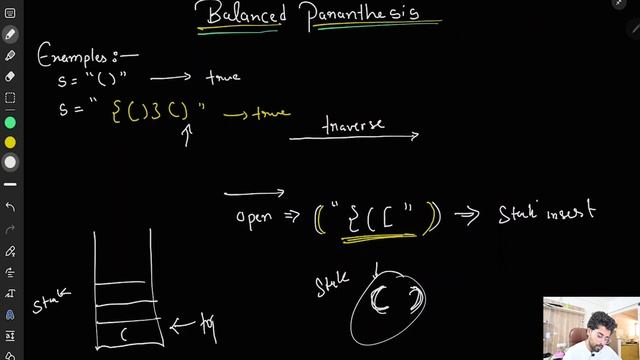 Balanced Pananthesis
Examples:-
s = "()" → true
s = " {()}() " → true
traverse
open ⇒ ( " {([ " ) ⇒ Stak insert
Stak
( )
Stak
( ← top